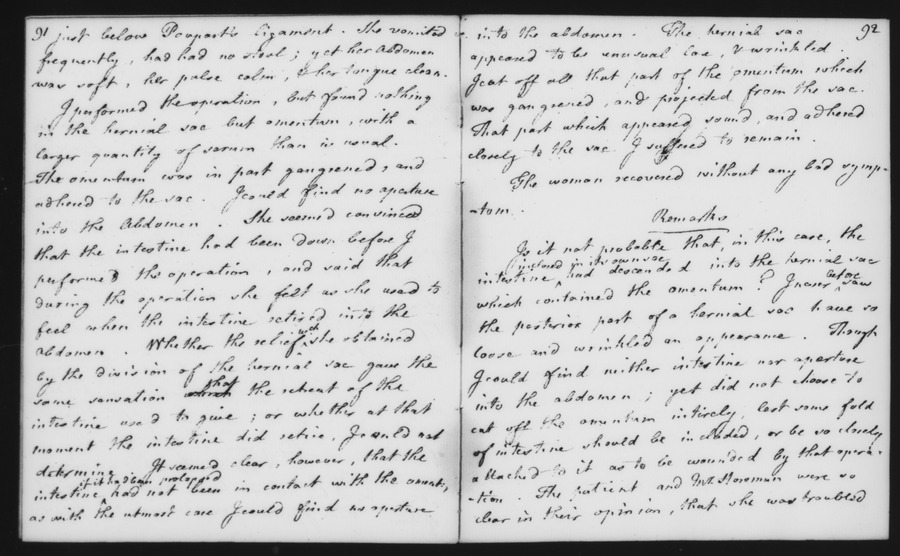 91
just below Poupart's ligament. She vomited
frequently, had had no stool; yet her Abdomen
was soft, her pulse calm, & her tongue clean.
I performed the operation, but found nothing
in the hernial sac but omentum, with a
larger quantity of serum than is usual.
The omentum was in part gangrened, and
adhered to the sac. I could find no aperture
into the Abdomen. She seemed convinced
that the intestine had been down before I
performed the operation, and said that
during the operation she felt as she used to
feel when the intestine retired into the
Abdomen. Whether the relief which she obtained
by the division of the hernial sac gave the
same sensation that the retreat of the
intestine used to give; or whether at that
moment the intestine did retire, I could not
determine. It seemed clear, however, that the
intestine, if it had been prolapsed had not been in contact with the omentum,
as with the utmost care I could find no aperture
92
into the abdomen. The hernial sac
appeared to be unusual loose, & wrinkled.
I cut off all that part of the omentum which
was gangrened, and projected from the sac.
That part which appeared sound, and adhered
closely to the sac I suffered to remain.
The woman recovered without any bad symp-
-tom.
Remarks
Is it not probable that, in this case, the
intestine inclosed in its own sac had descended into the hernial sac
which contained the omentum? I never before saw
the posterior part of a hernial sac have so
loose and wrinkled an appearance. Though
I could find neither intestine nor aperture
into the abdomen; yet did not choose to
cut off the omentum intirely, lest some fold
of intestine should be included, or be so closely
attached to it as to be wounded by that opera-
-tion. The patient and Mr Horsman were so
clear in their opinion, that she was troubled